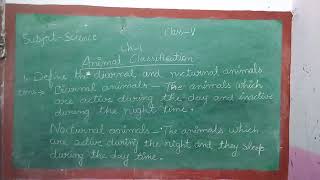 Subject-Science Class-V
Ch-1
Animal Classification
1. Define the diurnal and nocturnal animals
ans→ Diurnal animals - The animals which
are active during the day and inactive
during the night time.
Nocturnal animals - The animals which
are active during the night and they sleep
during the day time.